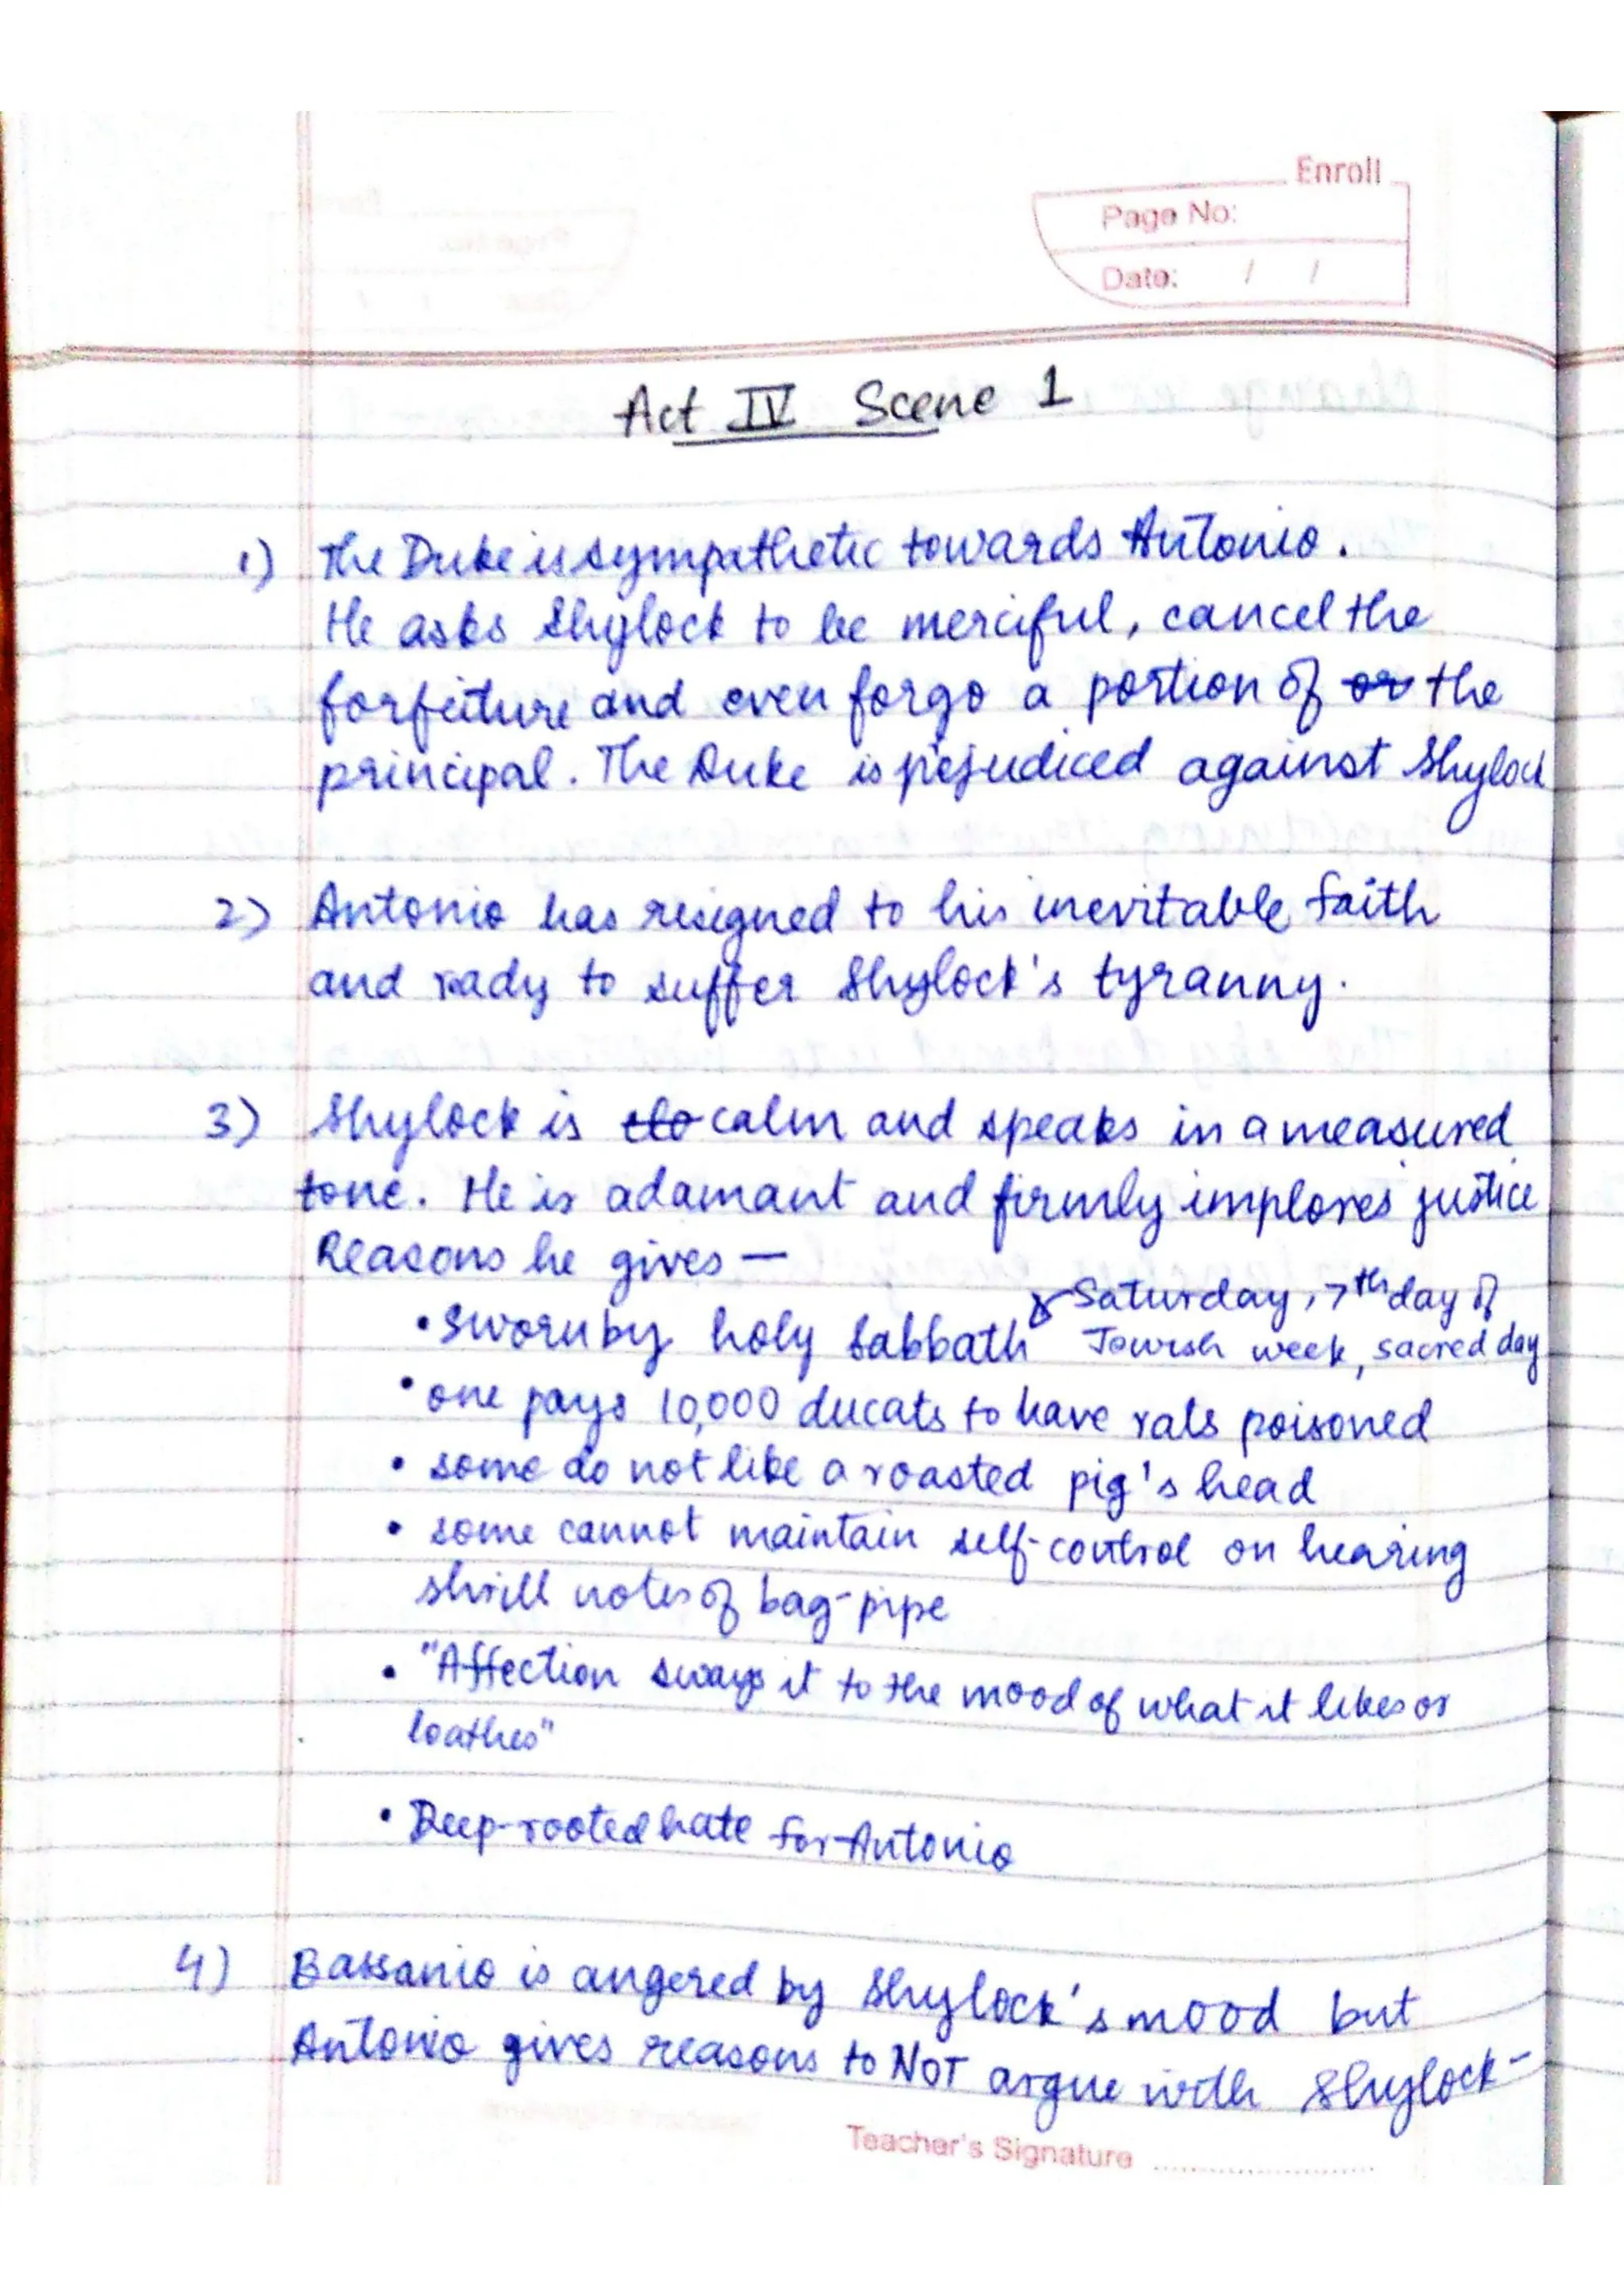 Enroll
Page No:
Date: / /
Act IV Scene 1
1) The Duke is sympathetic towards Antonio.
He asks Shylock to be merciful, cancel the
forfeiture and even forgo a portion of or the
principal. The Duke is prejudiced against Shylock
2) Antonio has resigned to his inevitable faith
and ready to suffer Shylock's tyranny.
3) Shylock is clo calm and speaks in a measured
tone. He is adamant and firmly implores justice
Reasons he gives —
• sworn by holy Sabbath → Saturday, 7th day of
Jewish week, sacred day
• one pays 10,000 ducats to have rats poisoned
• some do not like a roasted pig's head
• some cannot maintain self-control on hearing
shrill notes of bag-pipe
• "Affection sways it to the mood of what it likes or
loathes"
• Deep-rooted hate for Antonio
4) Bassanio is angered by Shylock's mood but
Antonio gives reasons to NOT argue with Shylock-
Teacher's Signature ....................